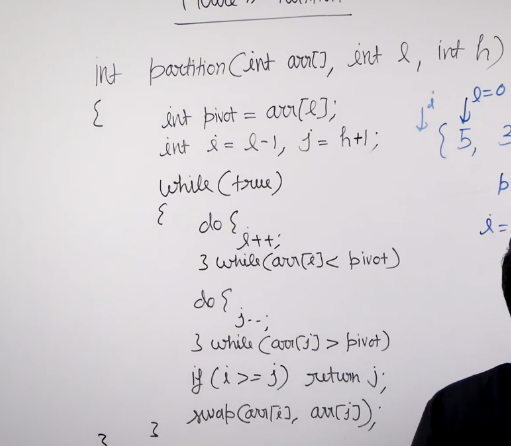 int partition(int arr[], int l, int h)
{
int pivot = arr[l];
int i = l-1, j = h+1;
while(true)
{
do {
i++;
} while(arr[i] < pivot)
do {
j--;
} while (arr[j] > pivot)
if (i >= j) return j;
swap(arr[i], arr[j]);
}
}
i
l=0
{ 5, 3
p
i =